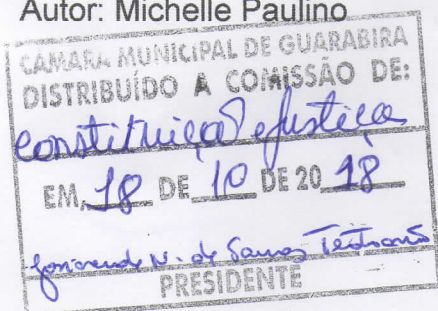 Autor: Michelle Paulino
CÂMARA MUNICIPAL DE GUARABIRA
DISTRIBUÍDO A COMISSÃO DE:
Constituição e Justiça
EM, 18 DE 10 DE 20 18
N. de
PRESIDENTE